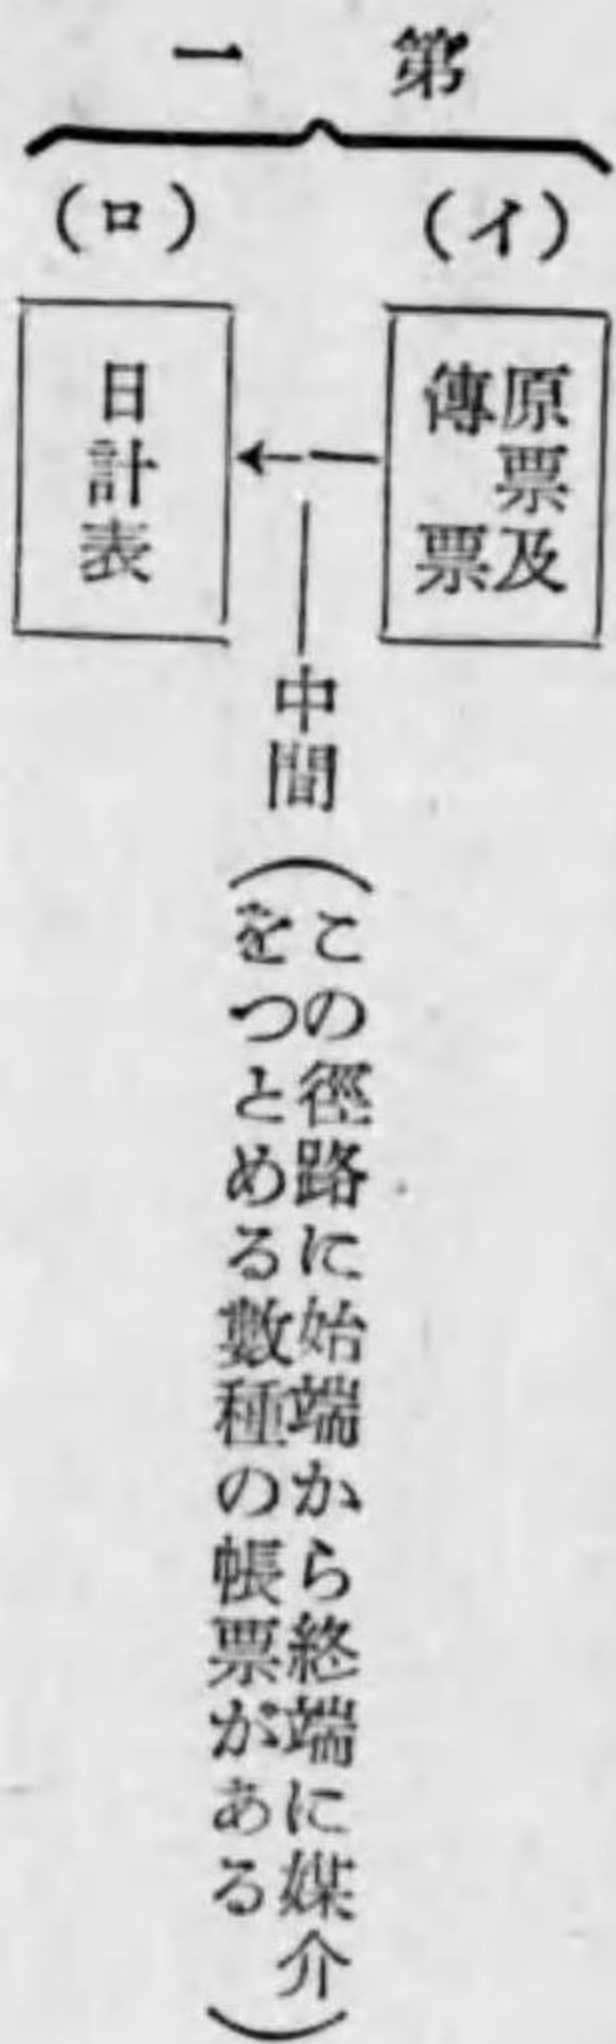 第一
(イ)
原票及
傳票
(ロ)
日計表
中間
(この徑路に始端から終端に媒介
をつとめる數種の帳票がある)